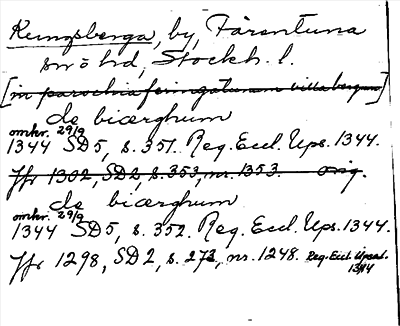 Kungsberga, by, Färentuna
snö hd, Stockh. l.
[in parochia feringatuna in villa bergum]
de biærghum
omkr. 29/9
1344 SD5, s. 351. Reg. Eccl. Ups. 1344.
Jfr 1302, SD2, s. 353, nr. 1353. orig.
de biærghum
omkr. 29/9
1344 SD5, s. 352. Reg. Eccl. Ups. 1344.
Jfr 1298, SD2, s. 273, nr. 1248. Reg. Eccl. Upsal.
1344